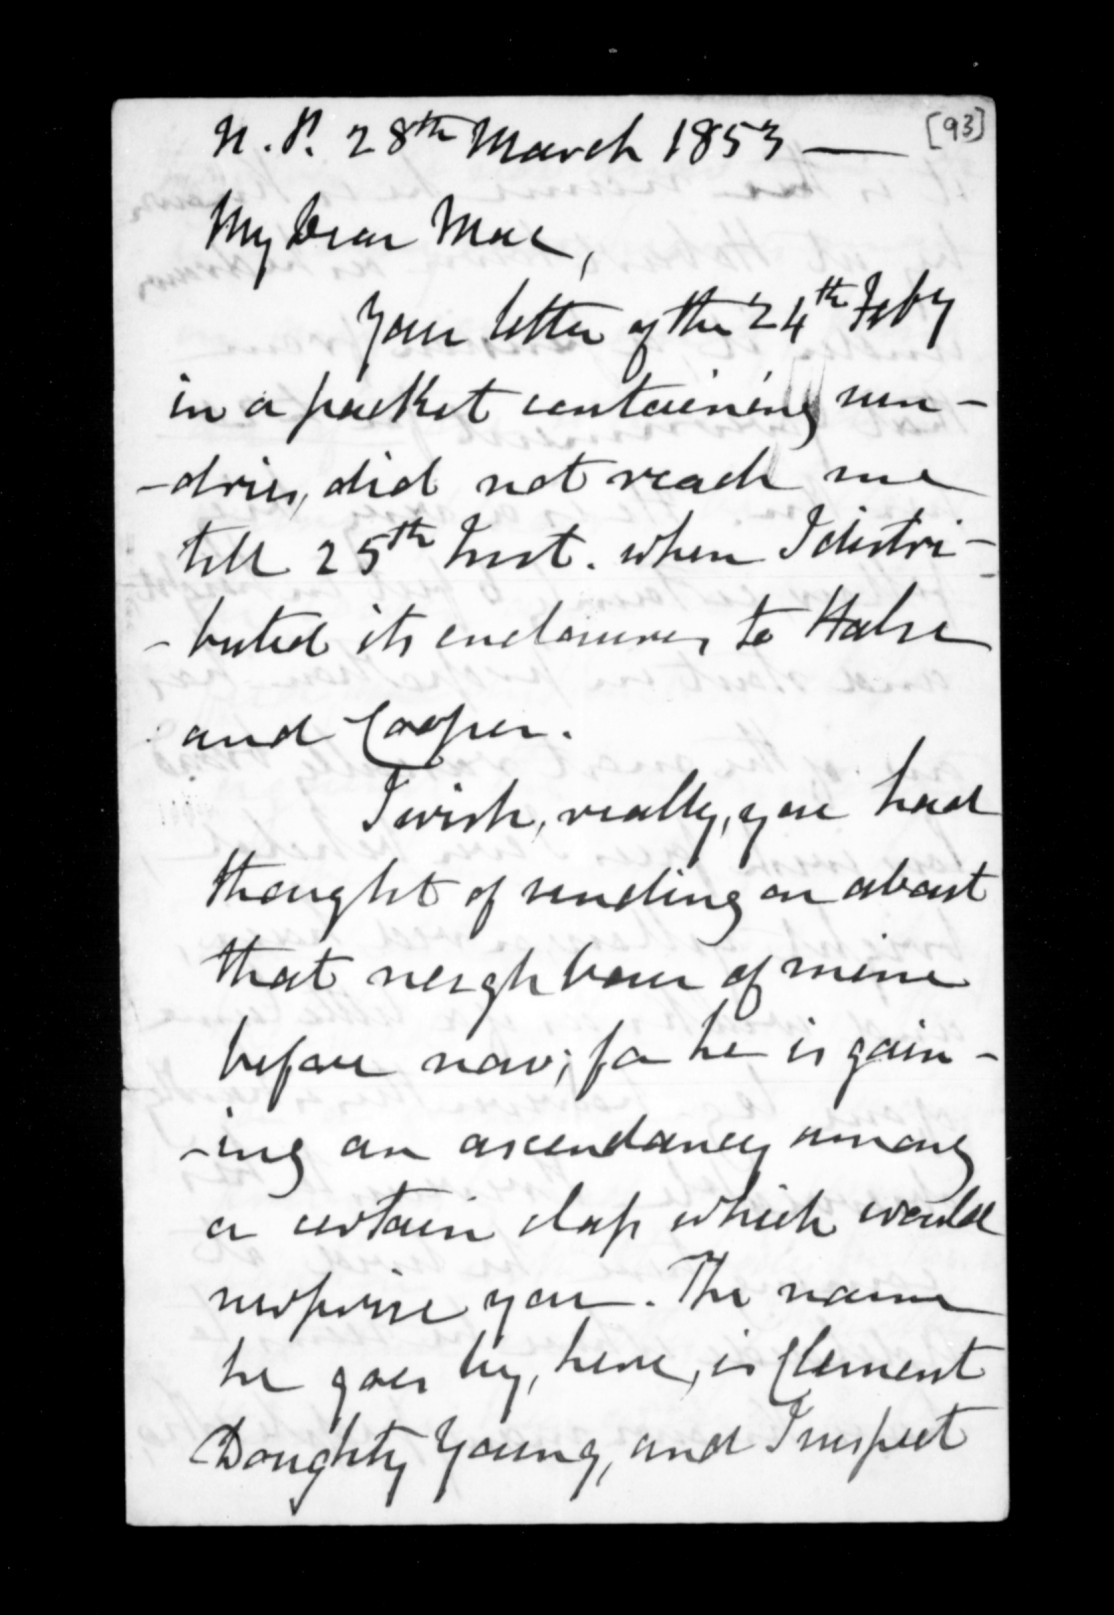 [93]
N.P. 28th March 1853 —
My Dear Mac,
Your letter of the 24th Feby
in a packet containing sun-
-dries, did not reach me
till 25th Inst. when I distri-
-buted its enclosures to Halse
and Cooper.
I wish, really, you had
thought of sending on about
that neighbour of mine
before now; for he is gain-
-ing an ascendancy among
a certain class which would
surprise you. The name
he goes by, here, is Clement
Doughty Young, and I suspect